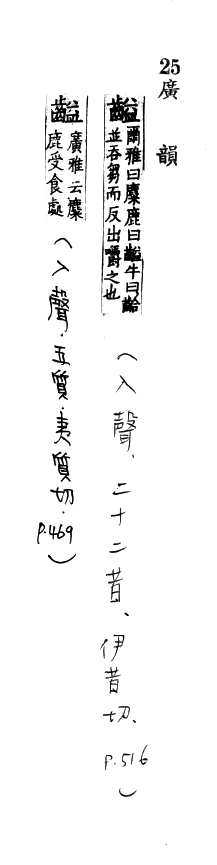 25
廣韻
齸爾雅曰麋鹿曰齸牛曰齝
並吞芻而反出嚼之也
(入聲、二十二昔、伊昔切、P.516)
齸廣雅云麋
鹿受食處
(入聲.五質.夷質切.P.469)